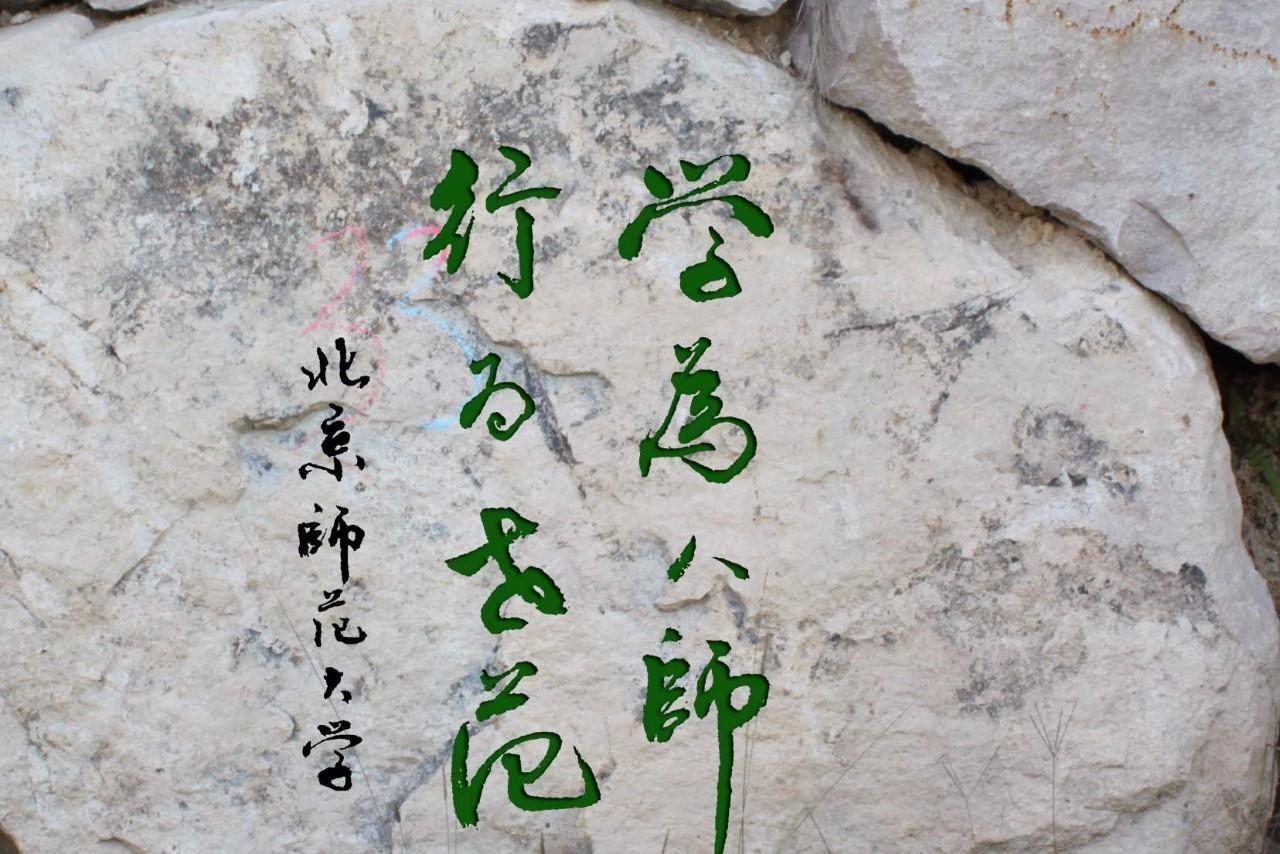 学為人師
行为世范
北京師范大学